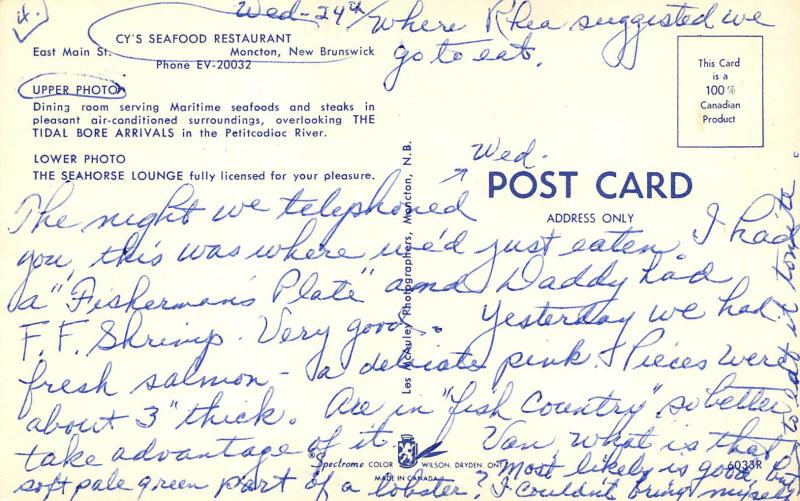 Wed - 24th / Where Rhea suggested we
go to eat.
CY'S SEAFOOD RESTAURANT
East Main St. Moncton, New Brunswick
Phone EV-20032
UPPER PHOTO
Dining room serving Maritime seafoods and steaks in
pleasant air-conditioned surroundings, overlooking THE
TIDAL BORE ARRIVALS in the Petitcodiac River.
LOWER PHOTO
THE SEAHORSE LOUNGE fully licensed for your pleasure.
This Card
is a
100%
Canadian
Product
POST CARD
ADDRESS ONLY
Les McAuley Photographers, Moncton, N.B.
Wed.
The night we telephoned
you, this was where we'd just eaten. I had
a "Fisherman's Plate" and Daddy had
F. F. Shrimp. Very good. Yesterday we had
fresh salmon - a delicate pink. Pieces were
about 3" thick. Are in "fish country" so better
take advantage of it. Van, what is that
soft pale green part of a lobster? Most likely is good, but
I couldn't bring myself
to eat it tonite.
Spectrome COLOR WILSON, DRYDEN, ONT.
MADE IN CANADA
6033R